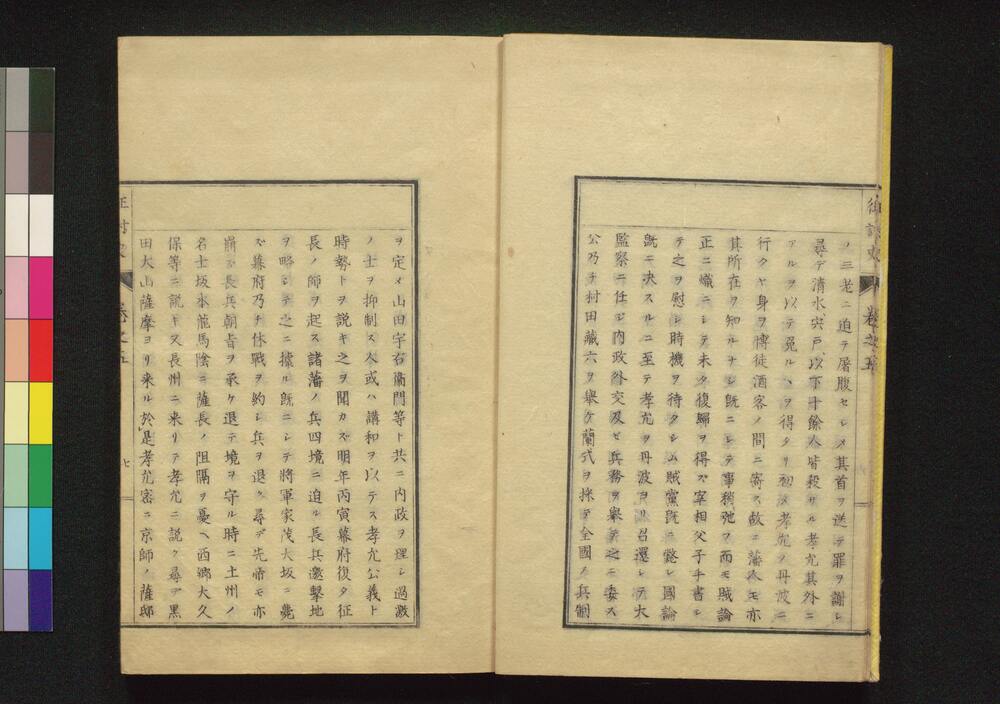 ノ三老ニ迫テ屠腹セシメ其首ヲ送テ罪ヲ謝シ
尋デ清水宍戸以下十餘人皆殺サル孝允其外ニ
アルヲ以テ免ルヽヲ得タリ初メ孝允ヲ丹波ニ
行クヤ身ヲ博徒酒客ノ間ニ寄ス故ニ藩人モ亦
其所在ヲ知ルナシ既ニシテ事稍弛フ而モ賊論
正ニ熾ニシテ未タ復歸ヲ得ズ宰相父子手書シ
テ之ヲ慰シ時機ヲ待タシム賊黨既ニ斃レ國論
既ニ决スルニ至テ孝允ヲ丹波ヨリ召還シテ大
監察ニ任シ内政外交及ビ兵務ヲ舉テ之ニ委ス
公乃チ村田藏六ヲ舉ケ蘭式ヲ採テ全國ノ兵制
ヲ定メ山田宇右衞門等ト共ニ内政ヲ理シ過激
ノ士ヲ抑制ス人或ハ講和ヲ以テス孝允公義ト
時勢トヲ説キ之ヲ聞カズ明年丙寅幕府復タ征
長ノ師ヲ起ス諸藩ノ兵四境ニ迫ル長兵邀擊地
ヲ略シテ之ニ據ル既ニシテ將軍家茂大坂ニ薨
ズ幕府乃チ休戰ヲ約シ兵ヲ退ク尋デ先帝モ亦
崩ズ長兵朝旨ヲ承ケ退テ境ヲ守ル時ニ土州ノ
名士坂本龍馬陰ニ薩長ノ阻隔ヲ憂ヘ西郷大久
保等ニ説キ又長州ニ来リテ孝允ニ説ク尋デ黒
田大山薩摩ヨリ来ル於是孝允密ニ京師ノ薩邸
卷之五
七